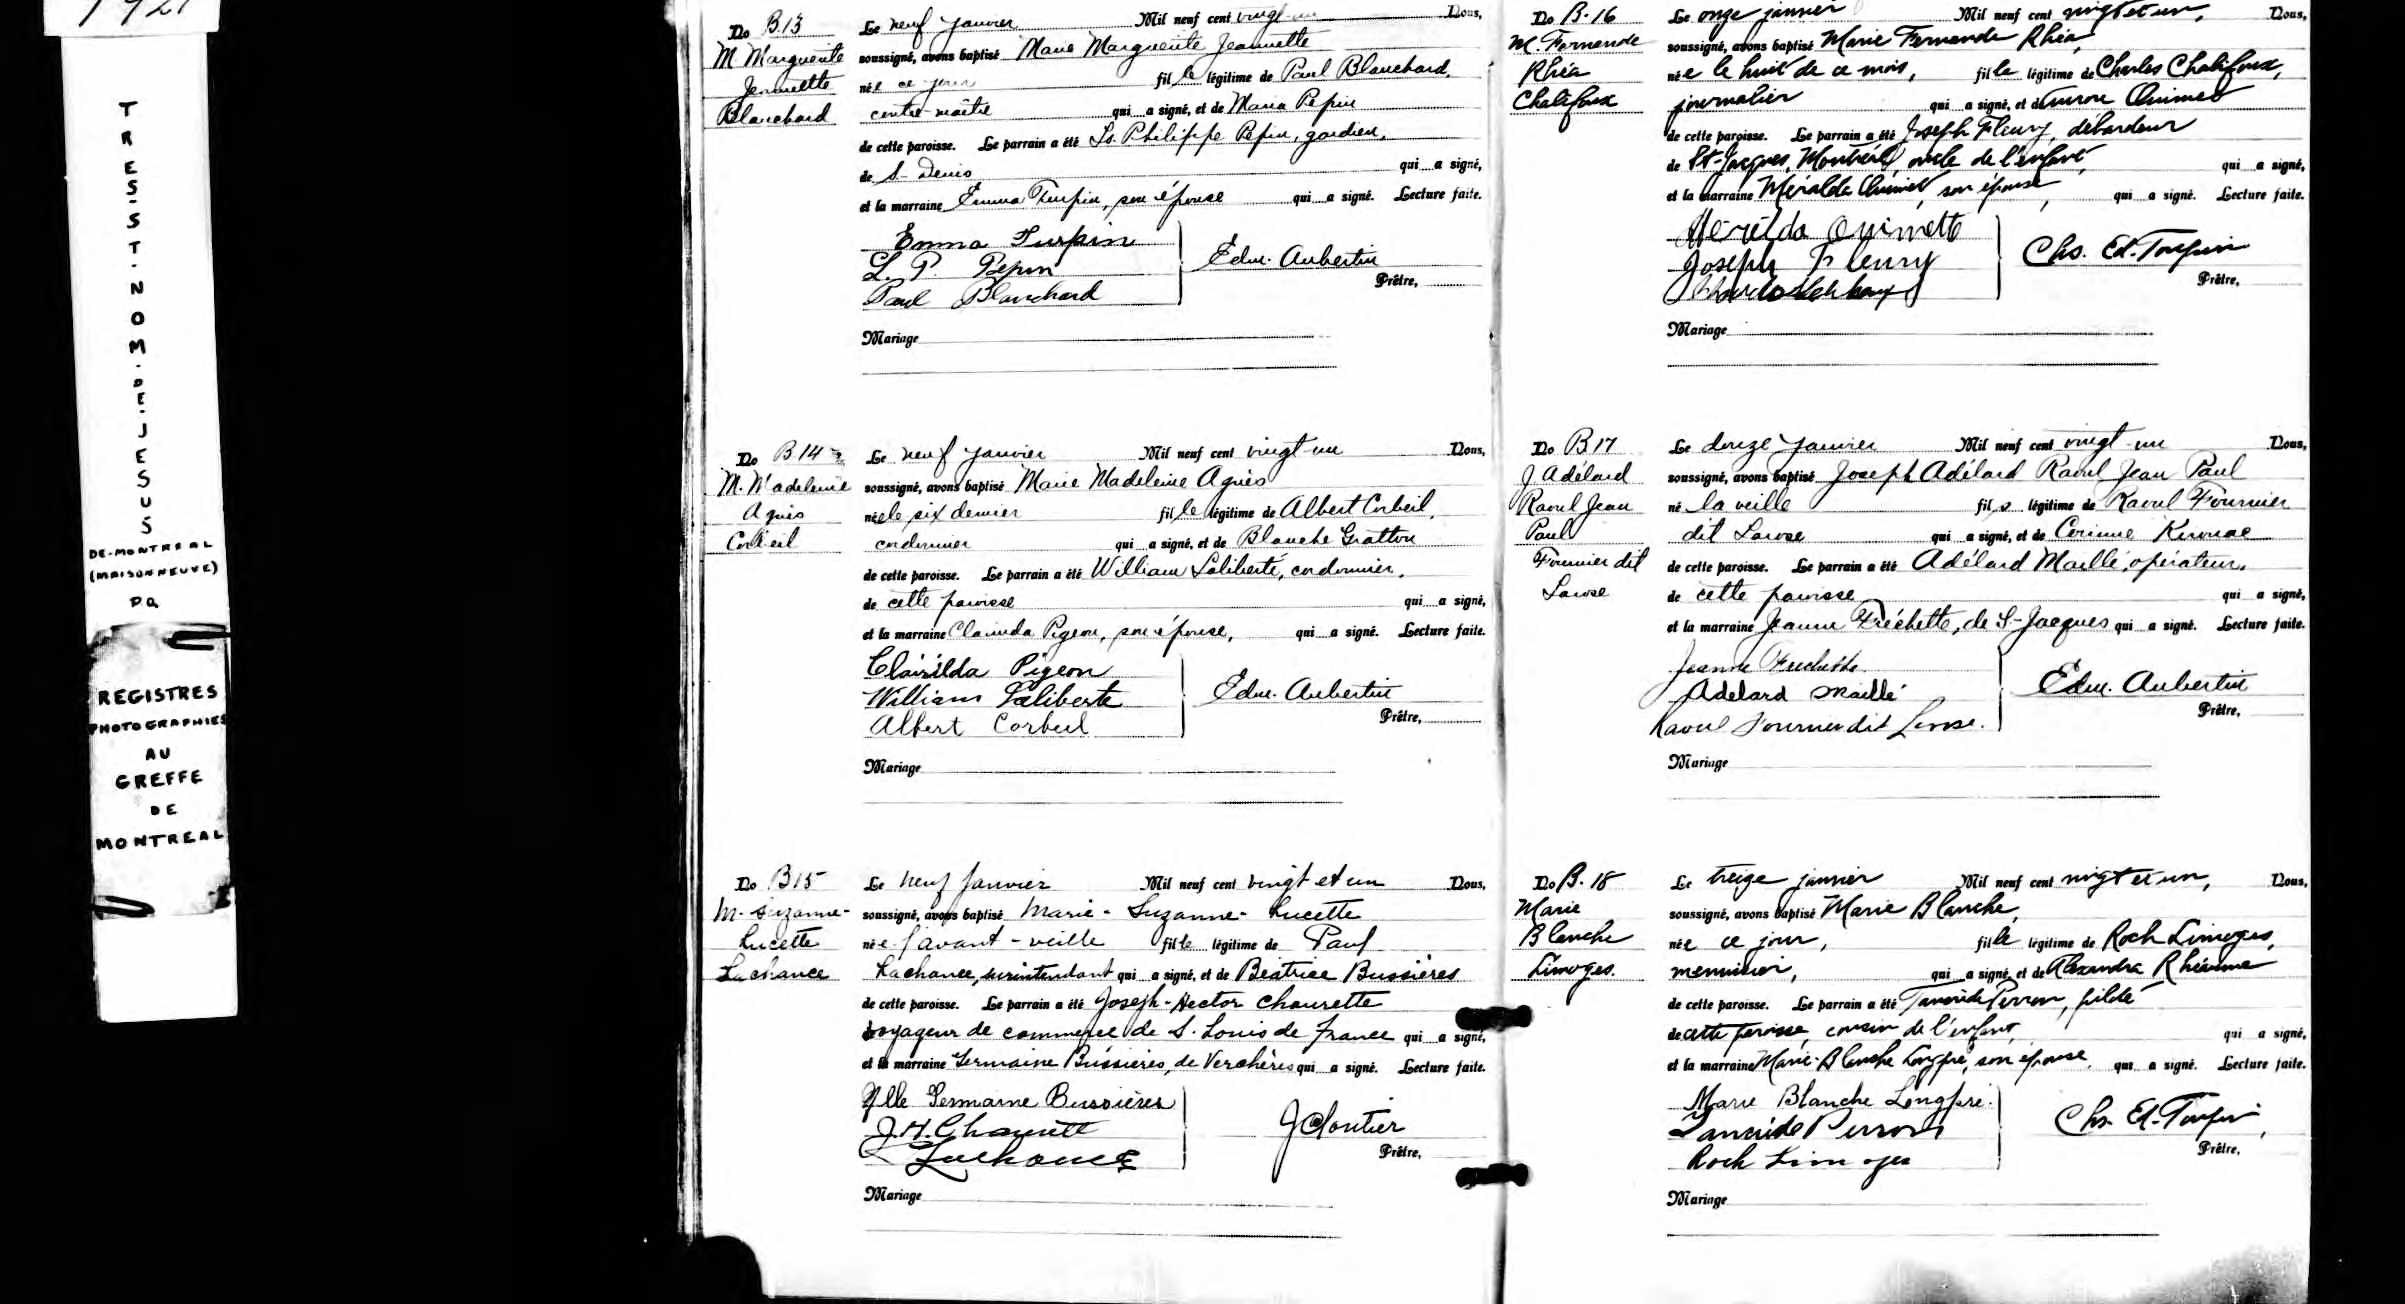 1921
TRES-ST-NOM-DE-JESUS
DE-MONTREAL
(MAISONNEUVE)
P.Q.
REGISTRES
PHOTOGRAPHIES
AU
GREFFE
DE
MONTREAL
No B.13
M. Marguerite
Jeannette
Blanchard
Le neuf janvier Mil neuf cent vingt-un Nous,
soussigné, avons baptisé Marie Marguerite Jeannette
née ce jour fille légitime de Paul Blanchard,
contre-maître qui a signé, et de Maria Pepin
de cette paroisse. Le parrain a été Ls. Philippe Pepin, gardien,
de S-Denis qui a signé,
et la marraine Emma Turpin, son épouse qui a signé. Lecture faite.
Emma Turpin
L. P. Pepin
Paul Blanchard
Edm. Aubertin
Prêtre,
Mariage
No B14
M. Madeleine
Agnès
Corbeil
Le neuf janvier Mil neuf cent vingt-un Nous,
soussigné, avons baptisé Marie Madeleine Agnès
née le six dernier fille légitime de Albert Corbeil,
cordonnier qui a signé, et de Blanche Gratton
de cette paroisse. Le parrain a été William Laliberté, cordonnier,
de cette paroisse qui a signé,
et la marraine Clarinda Pigeon, son épouse, qui a signé. Lecture faite.
Clairilda Pigeon
William Laliberte
Albert Corbeil
Edm. Aubertin
Prêtre,
Mariage
No B15
M-Suzanne-
Lucette
Lachance
Le neuf janvier Mil neuf cent vingt et un Nous,
soussigné, avons baptisé Marie-Suzanne-Lucette
née l'avant-veille fille légitime de Paul
Lachance, surintendant qui a signé, et de Béatrice Bussières
de cette paroisse. Le parrain a été Joseph-Hector Chaurette
voyageur de commerce de S. Louis de France qui a signé,
et la marraine Germaine Bussières, de Verchères qui a signé. Lecture faite.
Mlle Germaine Bussières
J.H. Chaurette
Lachance
J Cloutier
Prêtre,
Mariage
No B-16
M. Fernande
Rhéa
Chalifoux
Le onze janvier Mil neuf cent vingt et un, Nous,
soussigné, avons baptisé Marie Fernande Rhéa,
née le huit de ce mois, fille légitime de Charles Chalifoux,
journalier qui a signé, et de Aurore Ouimet
de cette paroisse. Le parrain a été Joseph Fleury, débardeur
de St-Jacques, Montréal, oncle de l'enfant, qui a signé,
et la marraine Méralda Ouimet, son épouse, qui a signé. Lecture faite.
Ouimette
Joseph Fleury
Chs. Ed. Toupin
Prêtre,
Mariage
No B17
J Adélard
Raoul Jean
Paul
Fournier dit
Larose
Le douze janvier Mil neuf cent vingt-un Nous,
soussigné, avons baptisé Joseph Adélard Raoul Jean Paul
né la veille fils légitime de Raoul Fournier
dit Larose qui a signé, et de Corinne Kirouac
de cette paroisse. Le parrain a été Adélard Maillé, opérateur,
de cette paroisse qui a signé,
et la marraine Jeanne Fréchette, de S-Jacques qui a signé. Lecture faite.
Jeanne Frechette
Adelard Maillé
Raoul Fournier dit Larose.
Edm. Aubertin
Prêtre,
Mariage
No B-18
Marie
Blanche
Limoges.
Le treize janvier Mil neuf cent vingt et un, Nous,
soussigné, avons baptisé Marie Blanche,
née ce jour, fille légitime de Roch Limoges,
menuisier, qui a signé, et de Alexandra Rhéaume
de cette paroisse. Le parrain a été Tancrède Perron,
de cette paroisse, cousin de l'enfant, qui a signé,
et la marraine Marie-Blanche Longpré, son épouse, qui a signé. Lecture faite.
Marie Blanche Longpré.
Tancrède Perron
Roch Limoges
Chs. Ed. Toupin,
Prêtre,
Mariage